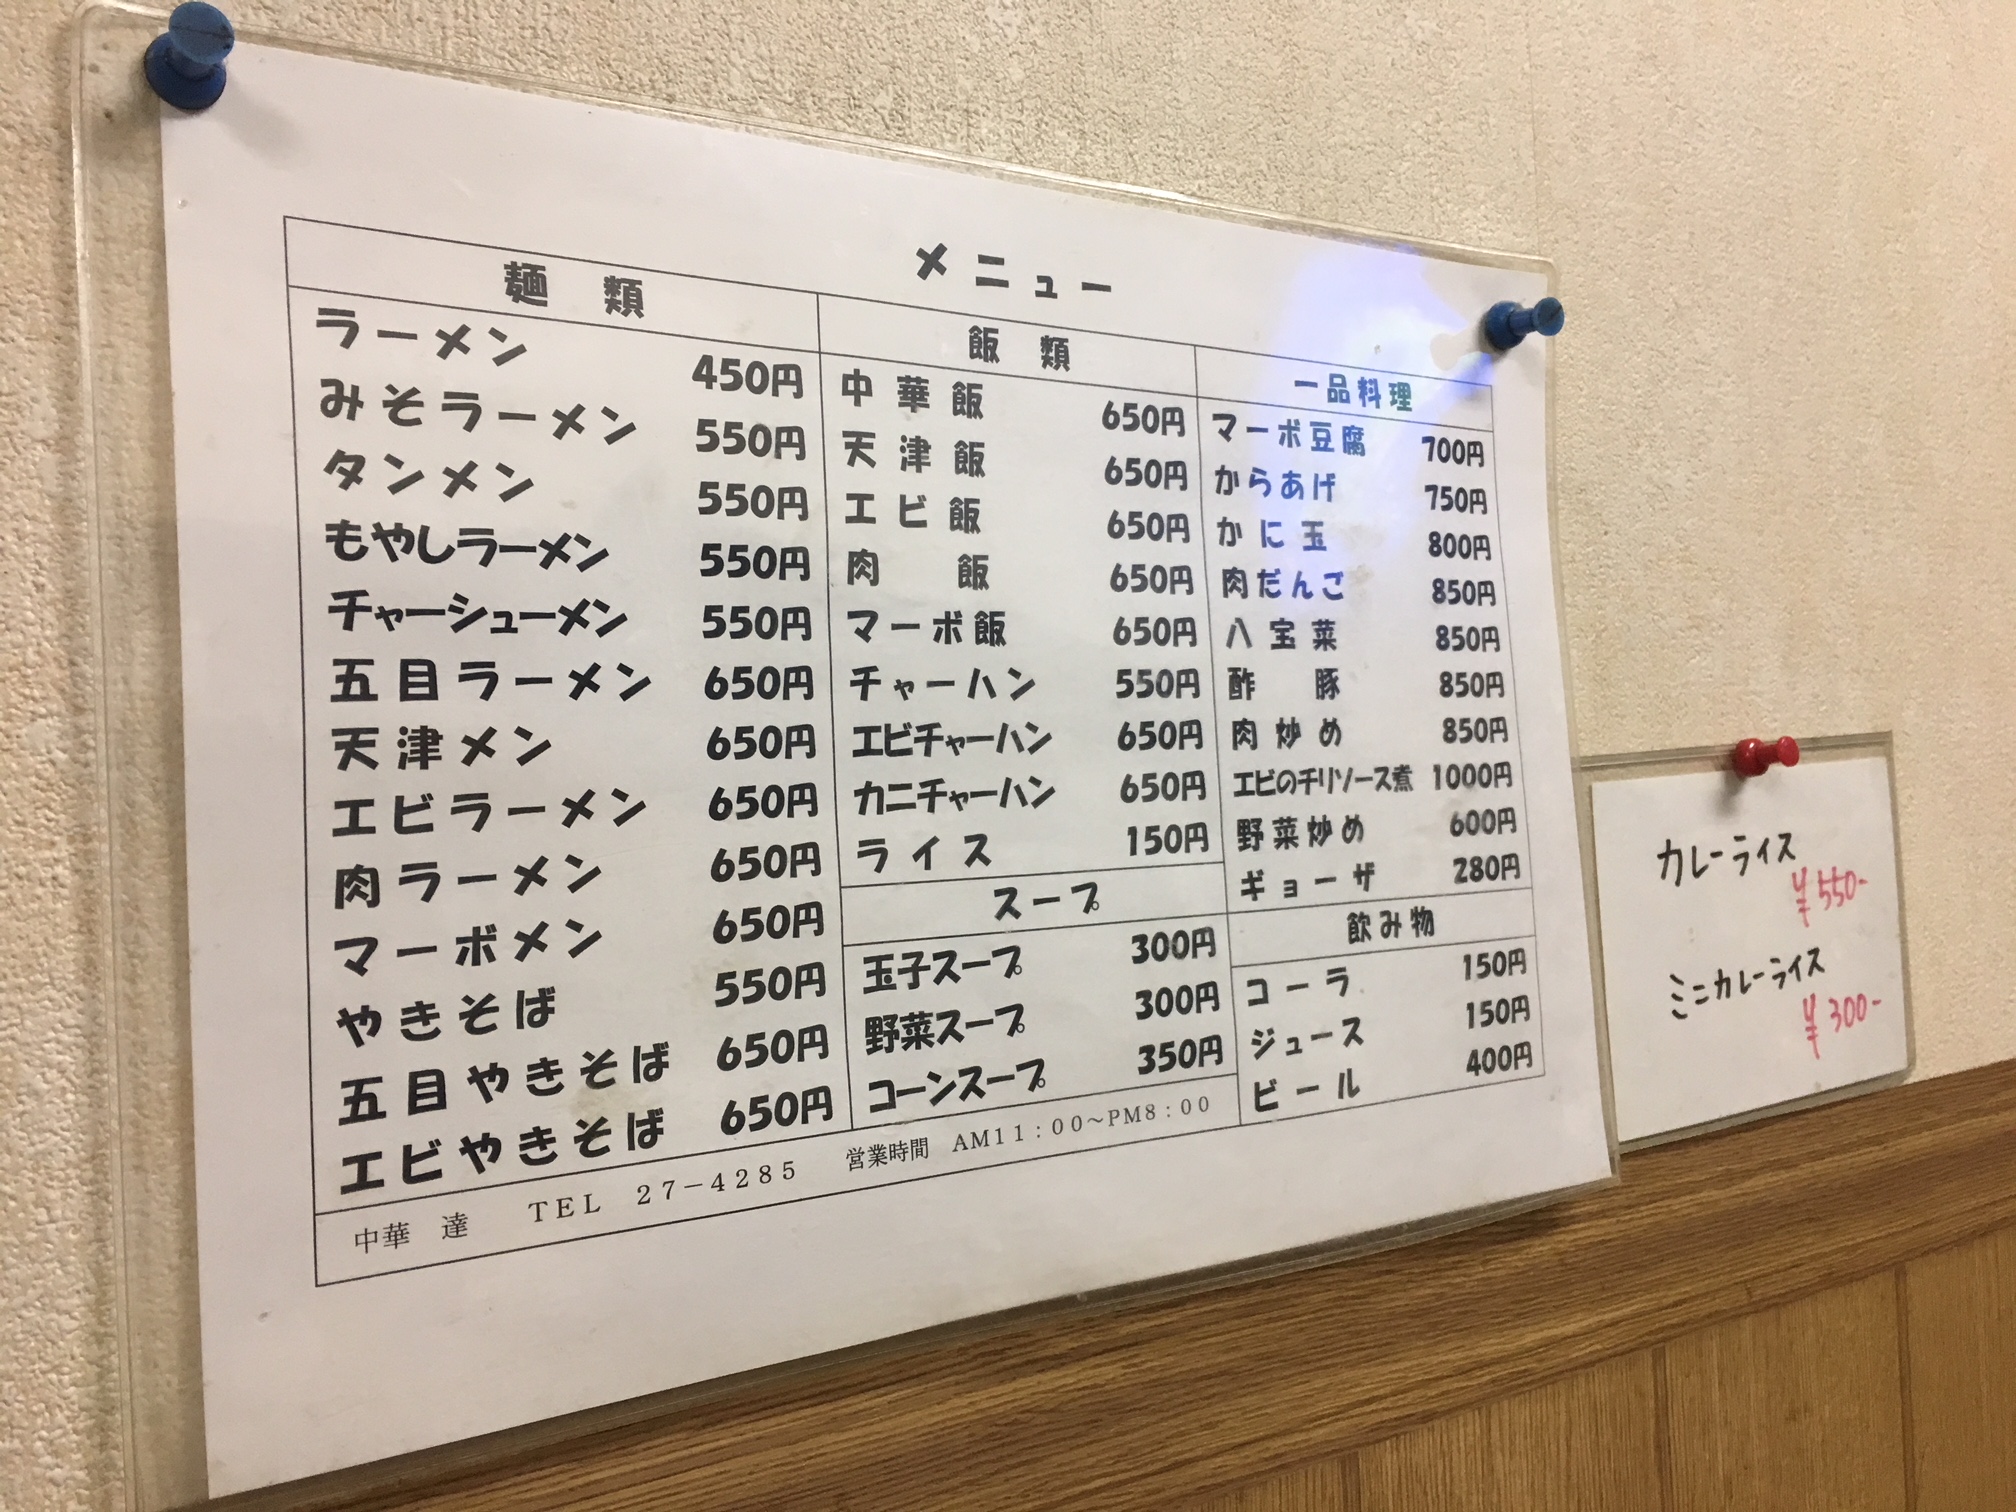 メニュー
麺類
ラーメン 450円
みそラーメン 550円
タンメン 550円
もやしラーメン 550円
チャーシューメン 550円
五目ラーメン 650円
天津メン 650円
エビラーメン 650円
肉ラーメン 650円
マーボメン 650円
やきそば 550円
五目やきそば 650円
エビやきそば 650円
飯類
中華飯 650円
天津飯 650円
エビ飯 650円
肉飯 650円
マーボ飯 650円
チャーハン 550円
エビチャーハン 650円
カニチャーハン 650円
ライス 150円
スープ
玉子スープ 300円
野菜スープ 300円
コーンスープ 350円
一品料理
マーボ豆腐 700円
からあげ 750円
かに玉 800円
肉だんご 850円
八宝菜 850円
酢豚 850円
肉炒め 850円
エビのチリソース煮 1000円
野菜炒め 600円
ギョーザ 280円
飲み物
コーラ 150円
ジュース 150円
ビール 400円
中華 達 TEL 27-4285 営業時間 AM11:00~PM8:00
カレーライス
¥550-
ミニカレーライス
¥300-